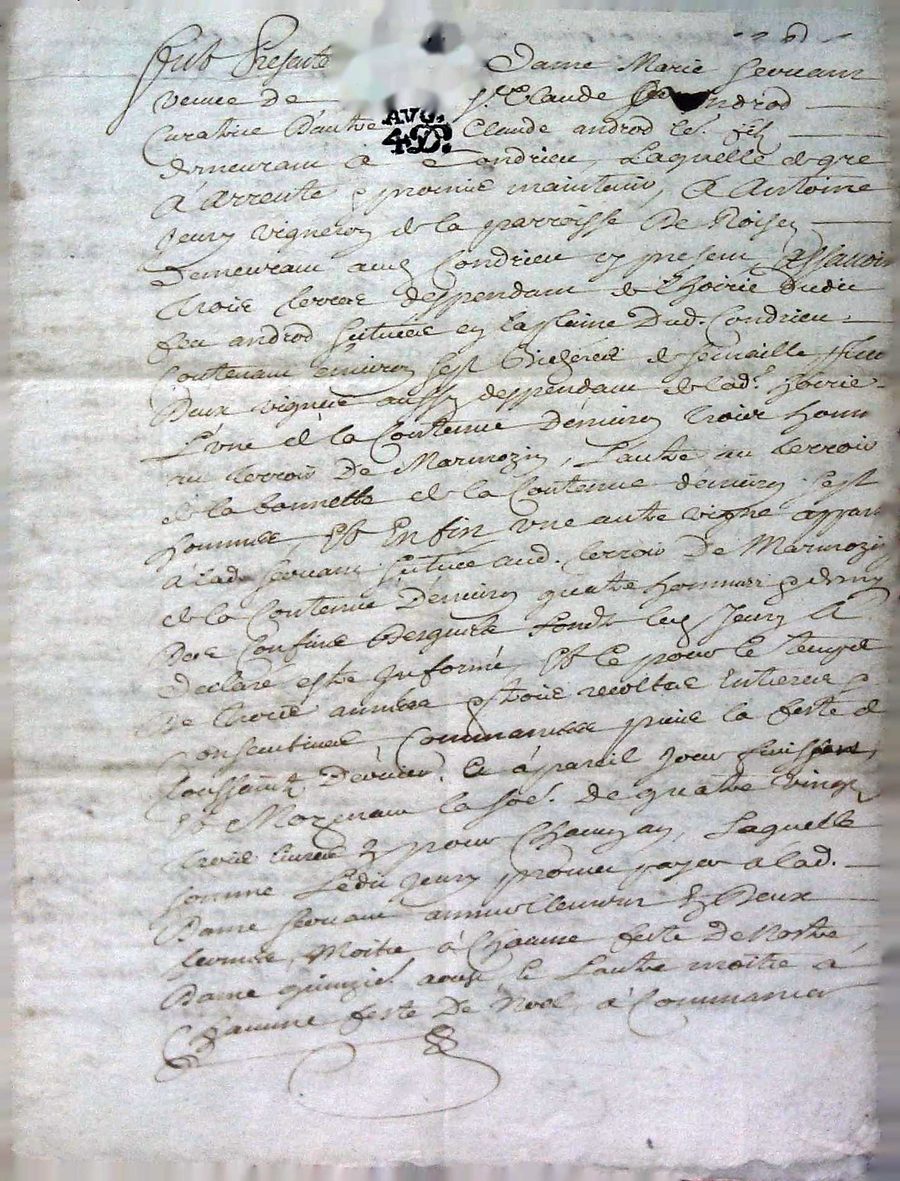 fut Presente Dame Marie Servant
veuve de Sr. Claude Androd
Curatrice D'autre Claude androd le. fils
demeurant à Condrieu, Laquelle de gré
à Arrenté & promis maintenir, à Antoine
Jeury vigneron de la parroisse De Roisey
Demeurant aud Condrieu ey present, assavoir
Trois terres deppendant de L'hoirie dudit
feu androd scituées ey la plaine Dud. Condrieu
Contenant Environ sept de semaille,
Deux vignes aussy deppendant de lad. hoirie
L'une de la Contenue D'environ trois hom
au terroir De Marmozin, L'autre au terroir
de la bonnette de la Contenue d'environ sept
hommée, Et Enfin une autre vigne appart
à lad. Servant scituée aud. terroir De Marmozin
de la Contenue D'environ quatre hommées & demy
Des Confins Desquels fonds led Jeury A
Declaré estre Informé, Et ce pour le temps
De trois années & trois recoltes Entieres &
Consecutives, Commancées puis la feste de
Toussaints Dernier. Et à pareil Jour finissant
Et Moyenant la so.e. De quatre vingt
trois livres pour Chacun an, Laquelle
somme Ledit Jeury promet payer à lad.
Dame Servant annuellement Ey Deux
termes, Moitié à Chacune feste De Nostre
Dame quinzie. aoust Et L'autre moitié à
Chacune feste De Noel, à Commancer
AUG.
4D.